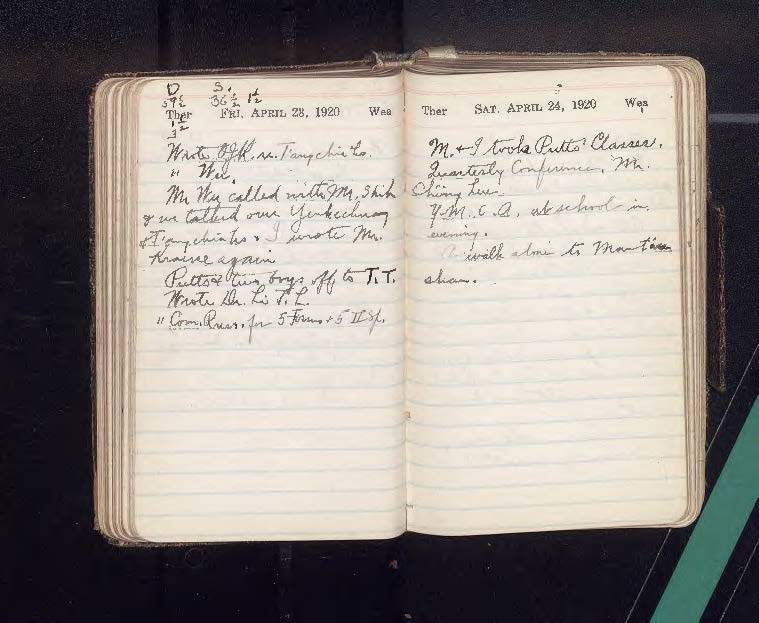 D S.
59 1/2 36 1/2 1 1/2
Ther FRI. APRIL 23, 1920 Wea
Wrote O.J.K. re. Tangchia to.
" Wu.
Mr Wu called with Mr. Shih
& we talked over Yenkechwang
& Tangchiato & I wrote Mr.
Krause again
Putts & two boys off to T.T.
Wrote Dr. Li T. L.
" Com. Press. for 5 Forms & 5 II Sp.
Ther SAT. APRIL 24, 1920 Wea
M. & I took Putts' Classes.
Quarterly Conference, Mr.
Y.M.C.A. at school in
evening.
A walk alone to Mao
shan.